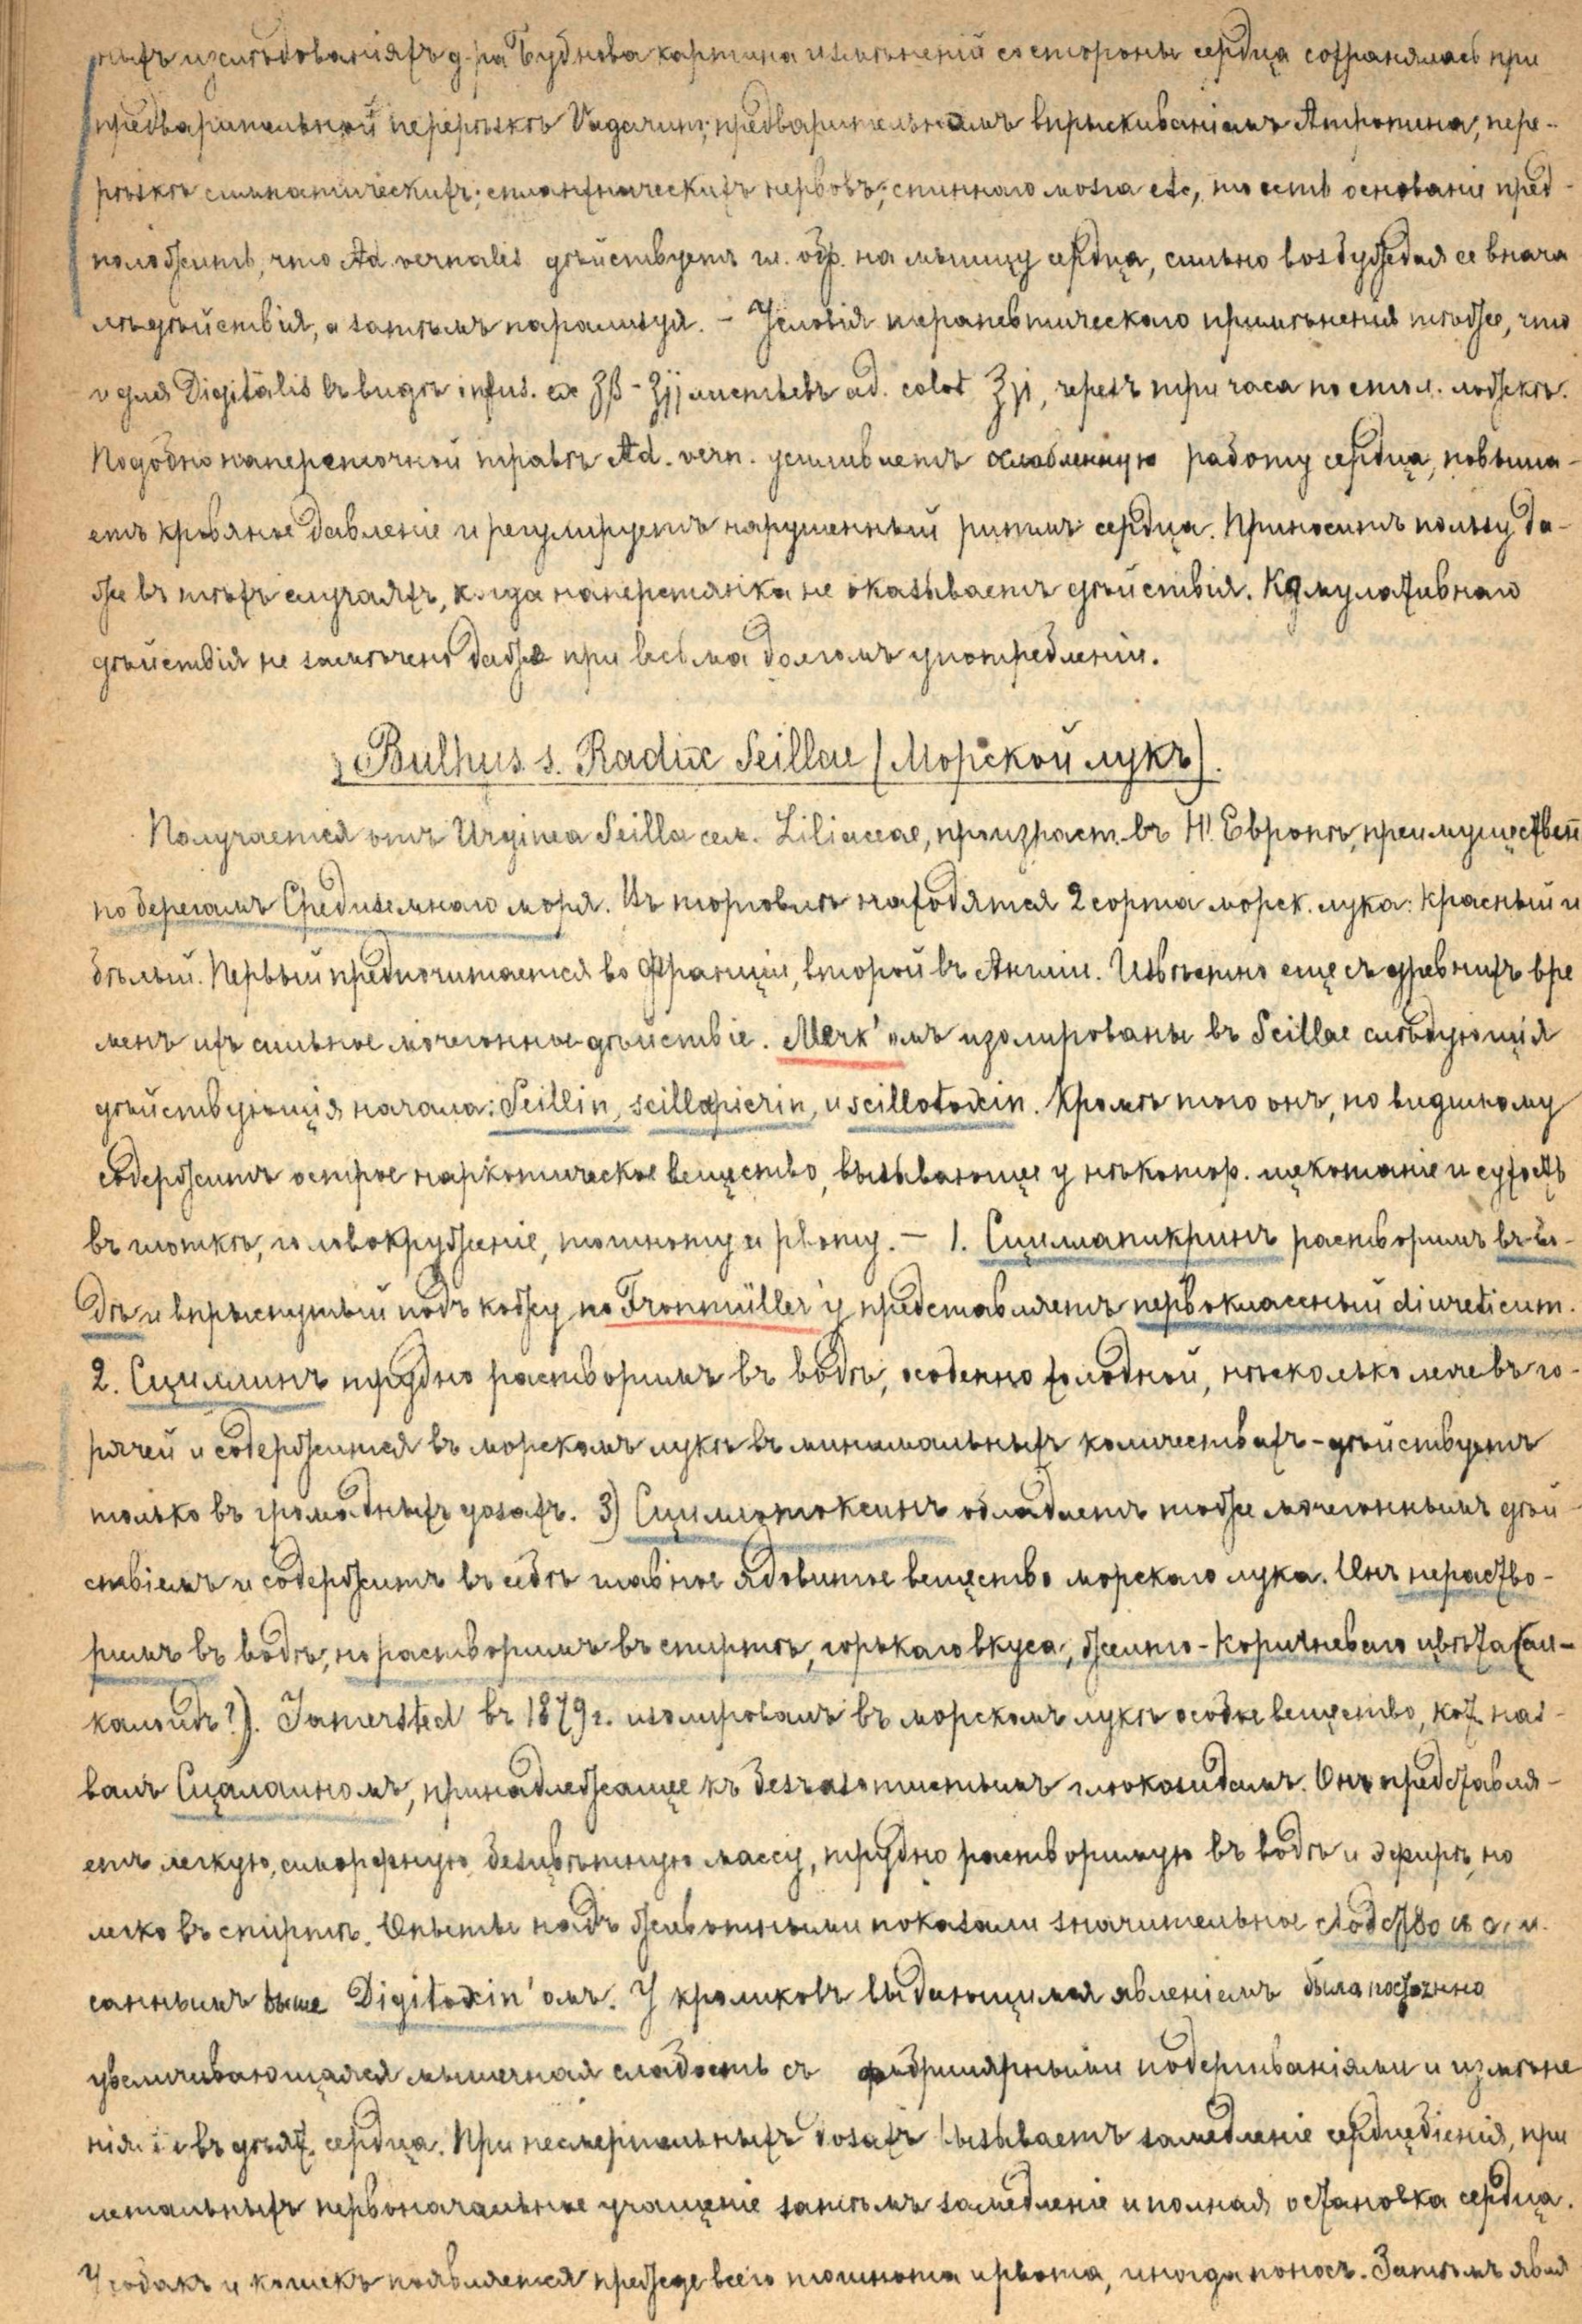 ныхъ изслѣдованіяхъ д-ра Бубнова картина измѣненій со стороны сердца сохранялась при
предварительной перерѣзкѣ Vagorum; предварительнымъ впрыскиваніемъ Атропина, пере-
рѣзкѣ симпатическихъ; спланхническихъ нервовъ; спиннаго мозга etc, то есть основаніе пред-
положить, что Ad. vernalis дѣйствуетъ гл. обр. на мышцу сердца, сильно возбуждая ее внача
лѣ дѣйствія, а затѣмъ парализуя. – Условія терапевтическаго примѣненія тѣже, что
и для Digitalis въ видѣ infus. ex ʒβ - ʒjj листьевъ ad. colat ʒvi, черезъ три часа по стол. ложкѣ.
Подобно наперсточной травѣ Ad. vern. усиливаетъ ослабленную работу сердца, повыша-
етъ кровяное давленіе и регулируетъ нарушенный ритмъ сердца. Приноситъ пользу да-
же въ тѣхъ случаяхъ, когда наперстянка не оказываетъ дѣйствія. Кумулативнаго
дѣйствія не замѣчено даже при весьма долгомъ употребленіи.
Bulbus s. Radix Scillae (Морской лукъ).
Получается отъ Urginea Scilla сем. Liliaceae, произраст. въ Ю. Европѣ, преимуществен
по берегамъ Средиземнаго моря. Въ торговлѣ находятся 2 сорта морск. лука: красный и
бѣлый. Первый предпочитается во Франціи, второй въ Англіи. Извѣстно еще съ древнихъ вре
менъ ихъ сильное мочегонное дѣйствіе. Merk'омъ изолированы въ Scillae слѣдующія
дѣйствующія начала: Scillin, scillapicrin, и scillotoxin. Кромѣ того онъ, по видимому
содержитъ острое наркотическое вещество, вызывающее у нѣкотор. щекотаніе и сухость
въ глоткѣ, головокруженіе, тошноту и рвоту. – 1. Сциллапикринъ растворимъ въ во-
дѣ и впрыснутый подъ кожу по Fronmüller'у представляетъ первоклассный diureticum.
2. Сциллинъ трудно растворимъ въ водѣ, особенно холодной, нѣсколько легче въ го-
рячей и содержится въ морскомъ лукѣ въ минимальныхъ количествахъ - дѣйствуетъ
только въ громадныхъ дозахъ. 3) Сциллотоксинъ обладаетъ тоже мочегоннымъ дѣй-
ствіемъ и содержитъ въ себѣ главное ядовитое вещество морскаго лука. Онъ нераство-
римъ въ водѣ, но растворимъ въ спиртѣ, горькаго вкуса, желто-коричневаго цвѣта (ал-
калоидъ?). Jamersted въ 1879 г. изолировалъ въ морскомъ лукѣ особое вещество, кот. наз-
валъ Сцилаиномъ, принадлежащее къ безъазотистымъ глюкозидамъ. Онъ представля-
етъ легкую, аморфную, безцвѣтную массу, трудно растворимую въ водѣ и эфирѣ, но
легко въ спиртѣ. Опыты надъ животными показали значительное сходство съ опи
саннымъ выше Digitoxin'омъ. У кроликовъ выдающимся явленіемъ была постоянно
увеличивающаяся мышечная слабость съ фибриллярными подергиваніями и измѣне
нія въ дѣят. сердца. При несмертельныхъ дозахъ вызываетъ замедленіе сердцебіенія, при
летальныхъ первоначальное учащеніе затѣмъ замедленіе и полная остановка сердца.
У собакъ и кошекъ появляется прежде всего тошнота и рвота, иногда поносъ. Затѣмъ явля